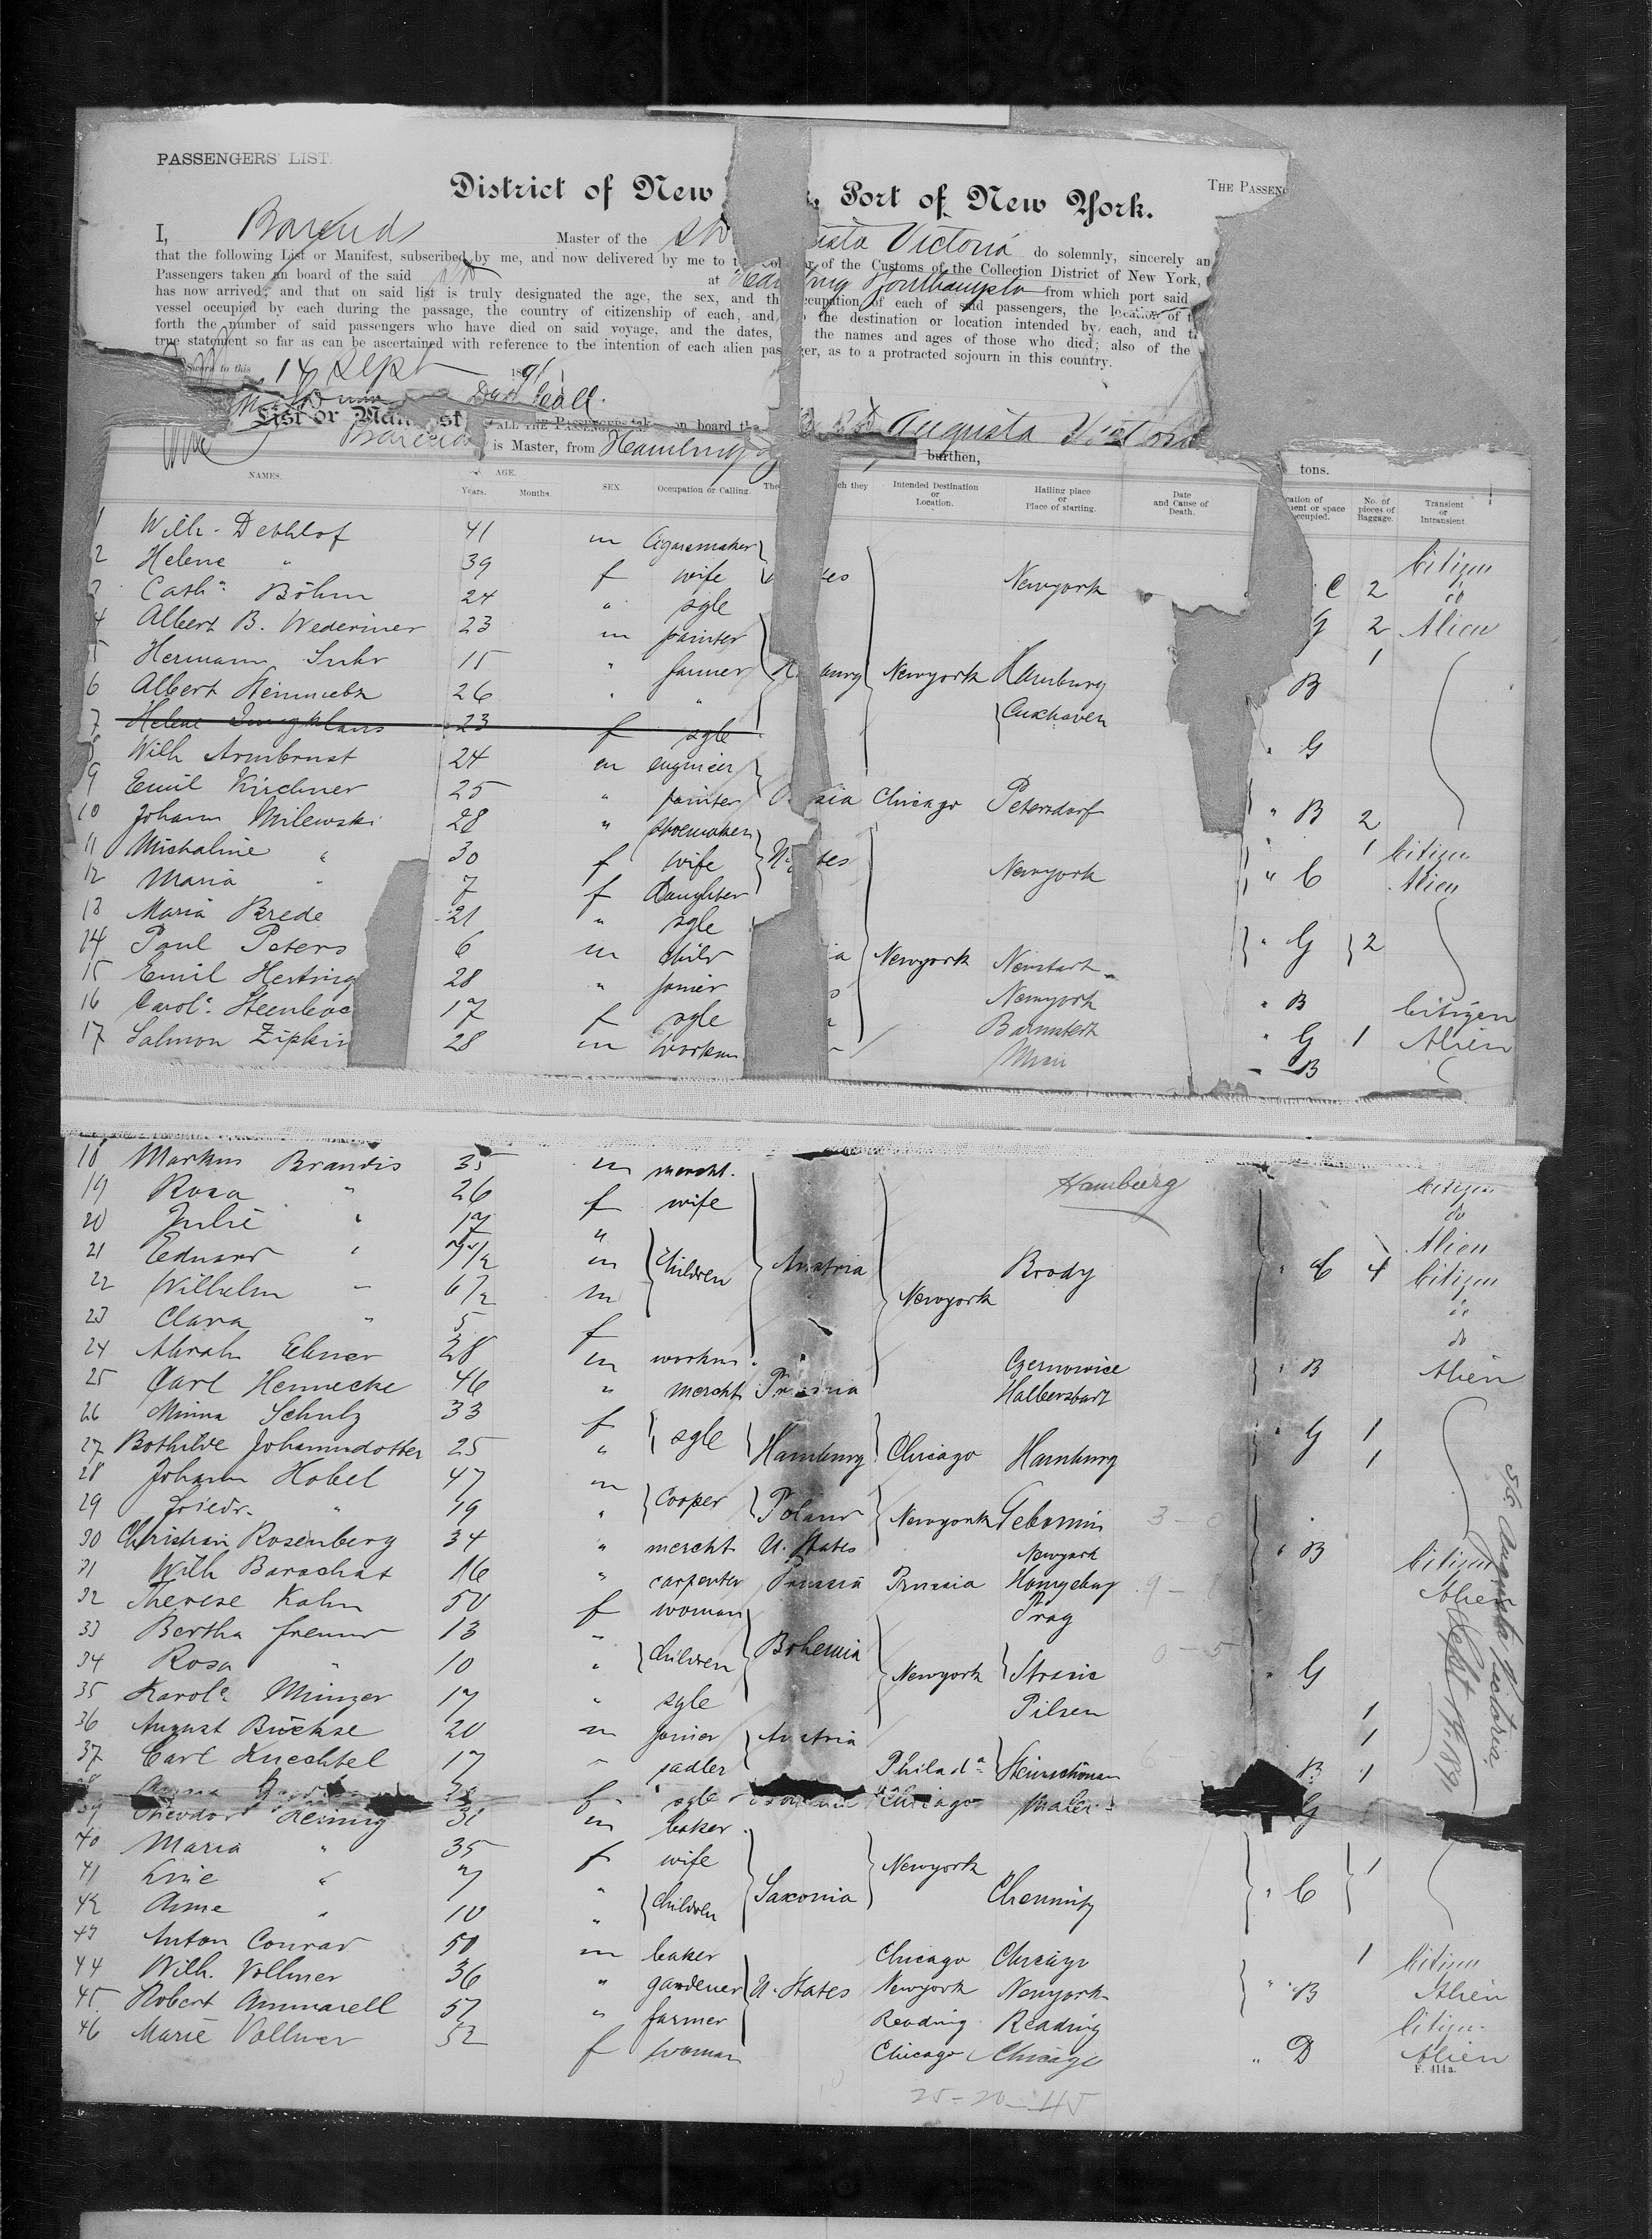 PASSENGERS' LIST.
THE PASSENG
District of New Port of New York.
I, Barends Master of the Victoria do solemnly, sincerely an
that the following List or Manifest, subscribed by me, and now delivered by me to of the Customs of the Collection District of New York,
Passengers taken on board of the said at Southampton from which port said
has now arrived; and that on said list is truly designated the age, the sex, and the occupation of each of said passengers, the location of
vessel occupied by each during the passage, the country of citizenship of each, and the destination or location intended by each, and
forth the number of said passengers who have died on said voyage, and the dates, the names and ages of those who died; also of the
true statement so far as can be ascertained with reference to the intention of each alien passenger, as to a protracted sojourn in this country.
Sworn to this 14 Sept 1891
List or Manifest ALL THE PASSENGERS taken on board the Augusta Victoria
Barends is Master, from Hamburg burthen, tons.
NAMES. AGE. Years. Months. SEX. Occupation or Calling. The ch they Intended Destination or Location. Hailing place or Place of starting. Date and Cause of Death. cation of ment or space occupied. No. of pieces of Baggage. Transient or Intransient.
1 Wilh. Dethlof 41 m Cigarmaker Citizen
2 Helene " 39 f wife Newyork C 2 do
3 Cath: Böhm 24 " sgle G 2 Alien
4 Albert B. Wedermer 23 m painter 1
5 Hermann Suhr 15 " farmer Newyork Hamburg B
6 Albert 26 " " Cuxhaven
7 Helene Jungklaus 23 f sgle " G
8 Wilh Armbrust 24 m engineer
9 Emil Kirchner 25 " painter Chicago Petersdorf " B 2
10 Johann Milewski 28 " shoemaker 1 Citizen
11 Michaline " 30 f wife Newyork " C Alien
12 Maria " 7 f Daughter
13 Maria Brede 21 " sgle " G 2
14 Paul Peters 6 m child Newyork
15 Emil Herting 28 " joiner Newyork " B Citizen
16 Carol: 17 f sgle Barmstedt " G 1 Alien
17 Salmon Zipkin 28 m workm " B
18 Markus Brandis 35 m mercht. Hamburg Citizen
19 Rosa " 26 f wife do
20 Julie " 17 " Alien
21 Eduard " 7 1/2 m children Austria Brody " C 4 Citizen
22 Wilhelm " 6 1/2 m Newyork do
23 Clara " 5 f do
24 Abrah Ebner 28 m workm " Czernowice " B Alien
25 Carl Hennecke 46 " mercht Prussia Halberstadt
26 Minna Schulz 33 f sgle " G 1
27 Bothilde Johannsdotter 25 " Hamburg Chicago Hamburg 1
28 Johann Hobel 47 m cooper
29 Friedr. " 19 " Poland Newyork
30 Christian Rosenberg 34 " mercht U. States Newyork " B Citizen
31 Wilh Barachat 16 " carpenter Prussia Prussia Alien
32 Therese Kahn 50 f woman Prag
33 Bertha 13 " children Bohemia
34 Rosa " 10 " Newyork " G
35 Karol: Münzer 17 " sgle Pilsen 1
36 August Büchse 20 m joiner Austria 1
37 Carl Knechtel 17 " sadler Philad: Steinschönau B 1
38 f sgle Chicago G
39 Theodor Hennig 31 m baker
40 Maria " 35 f wife Newyork 1
41 Line " 7 " children Saxonia Chemnitz " C
42 Anne " 10 "
43 Anton Conrad 50 m baker Chicago Chicago 1 Citizen
44 Wilh. Vollmer 36 " gardener U. States Newyork Newyork " B Alien
45 Robert Ammarell 57 " farmer Reading Reading Citizen
46 Marie Vollmer 52 f woman Chicago Chicago " D Alien
F. 414a.
25-20-45
SS Augusta Victoria
Sept 14. 1891